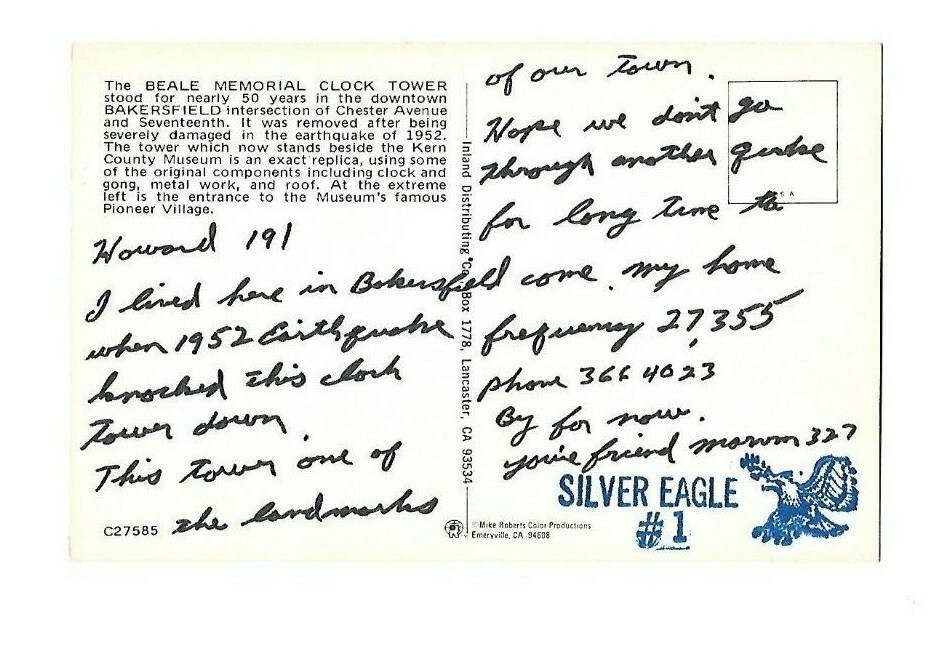 The BEALE MEMORIAL CLOCK TOWER
stood for nearly 50 years in the downtown
BAKERSFIELD intersection of Chester Avenue
and Seventeenth. It was removed after being
severely damaged in the earthquake of 1952.
The tower which now stands beside the Kern
County Museum is an exact replica, using some
of the original components including clock and
gong, metal work, and roof. At the extreme
left is the entrance to the Museum's famous
Pioneer Village.
Howard 191
I lived here in Bakersfield
when 1952 Earthquake
knocked this clock
Tower down.
This tower one of
the landmarks
C27585
Inland Distributing Co. Box 1778, Lancaster, CA 93534
© Mike Roberts Color Productions
Emeryville, CA 94608
of our town.
Hope we don't go
through another quake
for long time to
come. my home
frequency 27,355
phone 366 4023
By for now.
your friend 327
SILVER EAGLE
#1